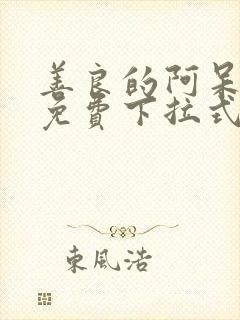 善良的阿呆
免費下拉式
東風浩